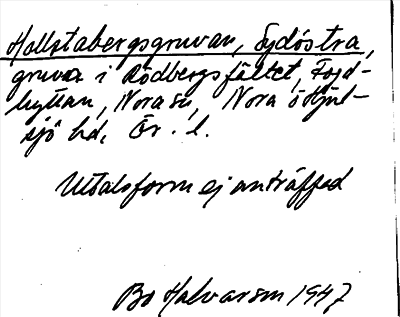 Hallstabergsgruvan, Sydöstra,
gruva i Rödbergsfältet, Fogd-
hyttan, Nora sn, Nora o Hjul-
sjö hd, Ör. l.
Uttalsform ej anträffad
Bo Halvarson 1947